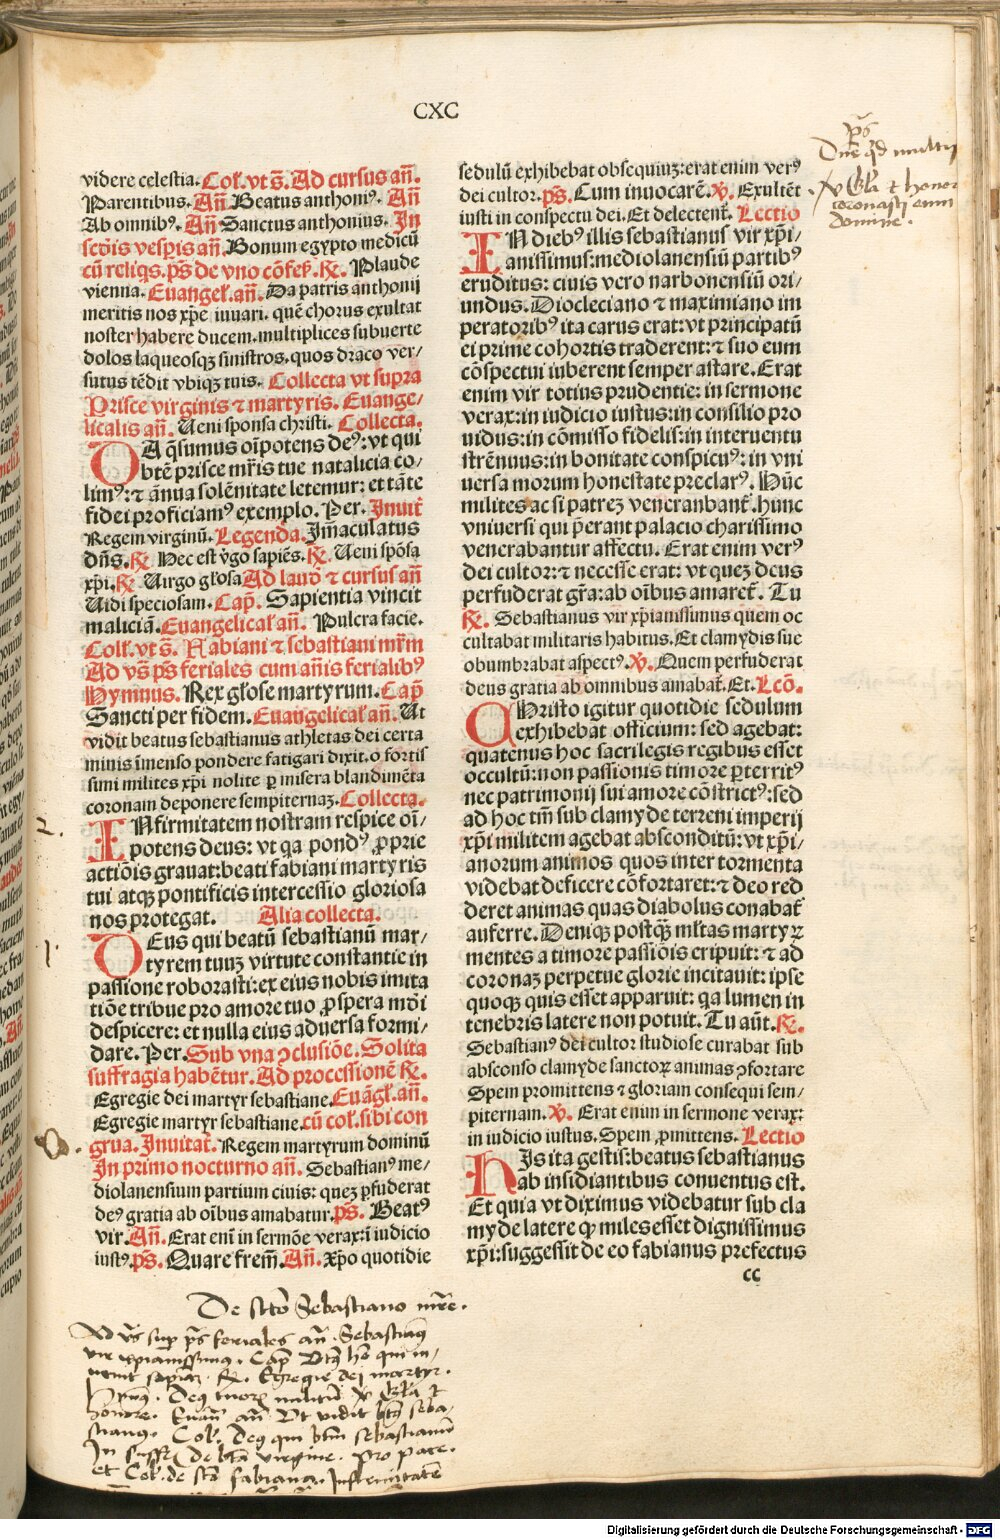 CXC
videre celestia. Col̄. vt s̄. Ad cursus an̄.
Parentibus. An̄. Beatus anthoniꝰ. An̄
Ab omnibꝰ. An̄ Sanctus anthonius. In
scd̄is vesp̄is an̄. Bonum egypto medicū
cū reliq̄s. ps̄ de vno cōfes̄. ℞. Plaude
vienna. Euangel̄. an̄. Da patris anthonij
meritis nos xp̄e iuuari. quē chorus exultat
noster habere ducem. multiplices subuerte
dolos laqueosqꝫ sinistros. quos draco ver/
sutus tēdit vbiqꝫ tuis. Collecta vt supra
Prisce virginis ⁊ martyris. Euange/
licalis an̄. Ueni sponsa christi. Collecta.
DA q̄sumus oīpotens deꝰ: vt qui
btē prisce mr̄is tue natalicia co/
limꝰ: ⁊ ānua solēnitate letemur: et tāte
fidei proficiamꝰ exemplo. Per. Inuit̄
Regem virginū. Legenda. Im̄aculatus
dn̄s. ℞. Hec est v̄go sapiēs. ℞. Ueni spōsa
xp̄i. ℞ Uirgo gl̄osa Ad laud̄ ⁊ cursus an̄
Uidi speciosam. Cap̄. Sapientia vincit
maliciā. Euangelical̄ an̄. Pulcra facie.
Col̄. vt s̄. Fabiani ⁊ sebastiani mr̄m
Ad vs̄ ps̄ feriales cum an̄is ferialibꝰ
Hymnus. Rex gl̄ose martyrum. Cap̄
Sancti per fidem. Euangelical̄ an̄. Ut
vidit beatus sebastianus athletas dei certa
minis īmenso pondere fatigari dixit. o fortis
simi milites xp̄i nolite ꝑ misera blandimēta
coronam deponere sempiternaꝫ. Collecta.
2. INfirmitatem nostram respice oī/
potens deus: vt qa pondꝰ ꝓprie
actiōis grauat: beati fabiani martyris
tui atqꝫ pontificis intercessio gloriosa
nos protegat. Alia collecta.
1. DEus qui beatū sebastianū mar/
tyrem tuuꝫ virtute constantie in
passione roborasti: ex eius nobis imita
tiōe tribue pro amore tuo ꝓspera mūdi
despicere: et nulla eius aduersa formi/
dare. Per. Sub vna ꝯclusiōe. Solita
suffragia habētur. Ad processionē ℞.
Egregie dei martyr sebastiane. Euāgl̄. an̄.
Egregie martyr sebastiane. cū col̄. sibi con
grua. Inuitat̄. Regem martyrum dominū
In primo nocturno an̄. Sebastianꝰ me/
diolanensium partium ciuis: queꝫ ꝑfuderat
deꝰ gratia ab oībus amabatur. ps̄. Beatꝰ
vir. An̄. Erat enī in sermōe verax: ī iudicio
iustꝰ. ps̄. Quare frem̄. An̄. Xp̄o quotidie
sedulū exhibebat obsequiuꝫ: erat enim verꝰ
dei cultor. ps̄. Cum inuocarē. ℣. Exultēt
iusti in conspectu dei. Et delectent̄. Lectio
IN diebꝰ illis sebastianus vir xp̄i/
anissimus: mediolanensiū partibꝰ
eruditus: ciuis vero narbonensiū ori/
undus. Diocleciano ⁊ maximiano im
peratoribꝰ ita carus erat: vt principatū
ei prime cohortis traderent: ⁊ suo eum
cōspectui iuberent semper astare. Erat
enim vir totius prudentie: in sermone
verax: in iudicio iustus: in consilio pro
uidus: in cōmisso fidelis: in interuentu
strēnuus: in bonitate conspicuꝰ: in vni
uersa morum honestate preclarꝰ. Hūc
milites ac si patreꝫ venerabant̄. hunc
vniuersi qui p̄erant palacio charissimo
venerabantur affectu. Erat enim verꝰ
dei cultor: ⁊ necesse erat: vt queꝫ deus
perfuderat gr̄a: ab oībus amaret̄. Tu
℞. Sebastianus vir xp̄ianissimus quem oc
cultabat militaris habitus. Et clamydis sue
obumbrabat aspectꝰ. ℣. Quem perfuderat
deus gratia ab omnibus amabat̄. Et. Lcō.
CHristo igitur quotidie sedulum
exhibebat officium: sed agebat:
quatenus hoc sacrilegis regibus esset
occultū: non passionis timore ꝑterritꝰ
nec patrimonij sui amore cōstrictꝰ: sed
ad hoc tm̄ sub clamyde terreni imperij
xp̄i militem agebat absconditū: vt xp̄i/
anorum animos quos inter tormenta
videbat deficere cōfortaret: ⁊ deo red
deret animas quas diabolus conabat̄
auferre. Deniqꝫ postqꝫ ml̄tas martyꝝ
mentes a timore passiōis eripuit: ⁊ ad
coronaꝫ perpetue glorie incitauit: ipse
quoqꝫ quis esset apparuit: qa lumen in
tenebris latere non potuit. Tu aūt. ℞.
Sebastianꝰ dei cultor studiose curabat sub
absconso clamyde sanctoꝝ animas ꝯfortare
Spem promittens ⁊ gloriam consequi sem/
piternam. ℣. Erat enim in sermone verax:
in iudicio iustus. Spem ꝓmittens. Lectio
HIs ita gestis: beatus sebastianus
ab insidiantibus conuentus est.
Et quia vt diximus videbatur sub cla
myde latere ꝙ miles esset dignissimus
xp̄i: suggessit de eo fabianus prefectus
cc
ps̄
Dn̄e qd̄ multi
℣ Gl̄a et honor
coronasti eum
domine.
De scto Sebastiano mr̄e.
Ad vs̄ sup ps̄ feriales an̄. Sebastianꝰ
vir xpianissimꝰ. Cap̄ Btꝰ hō qui in/
uenit sapiā. ℞. Egregie dei martyr.
Hymꝰ. Deꝰ tuoꝝ militū ℣ Gl̄a et
honore. Euan̄ an̄ Ut vidit btꝰ seba/
stianꝰ. Col̄. Deꝰ qui btm̄ sebastianū
In suff̄ de bt̄a virgine. pro pace.
et Col̄. de sto fabiano. Infirmitatē